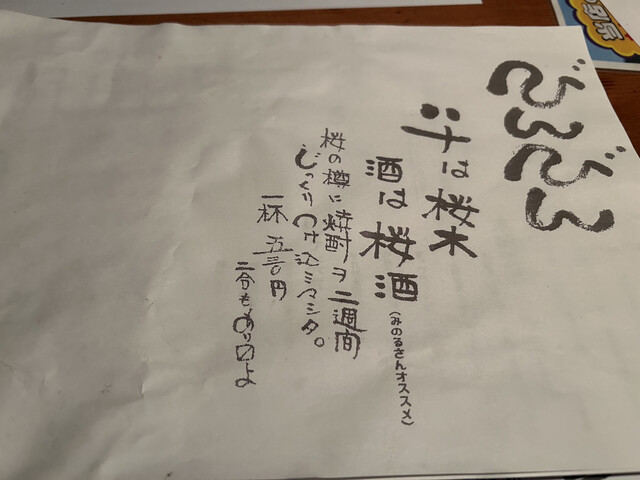 でんでん
汁は桜木
酒は桜酒(みのるさんオススメ)
桜の樽に焼酎ヲ二週間
じっくりつけ込ミマシタ。
一杯 五三〇円
二合もありマスよ